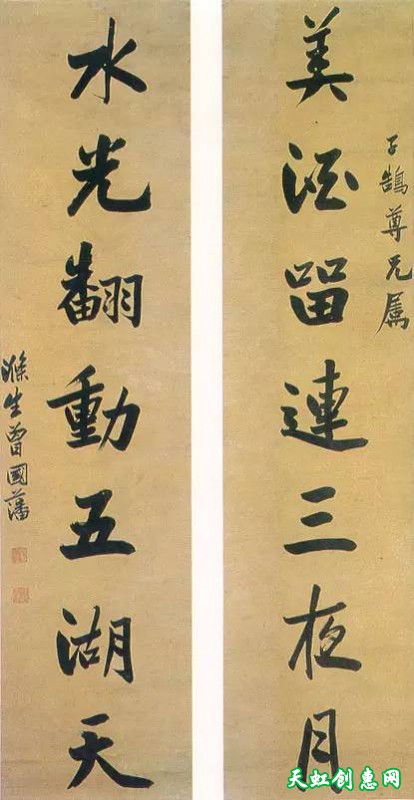 子鵠尊兄属
美酒留連三夜月
水光翻動五湖天
滌生曾國藩
天虹创惠网